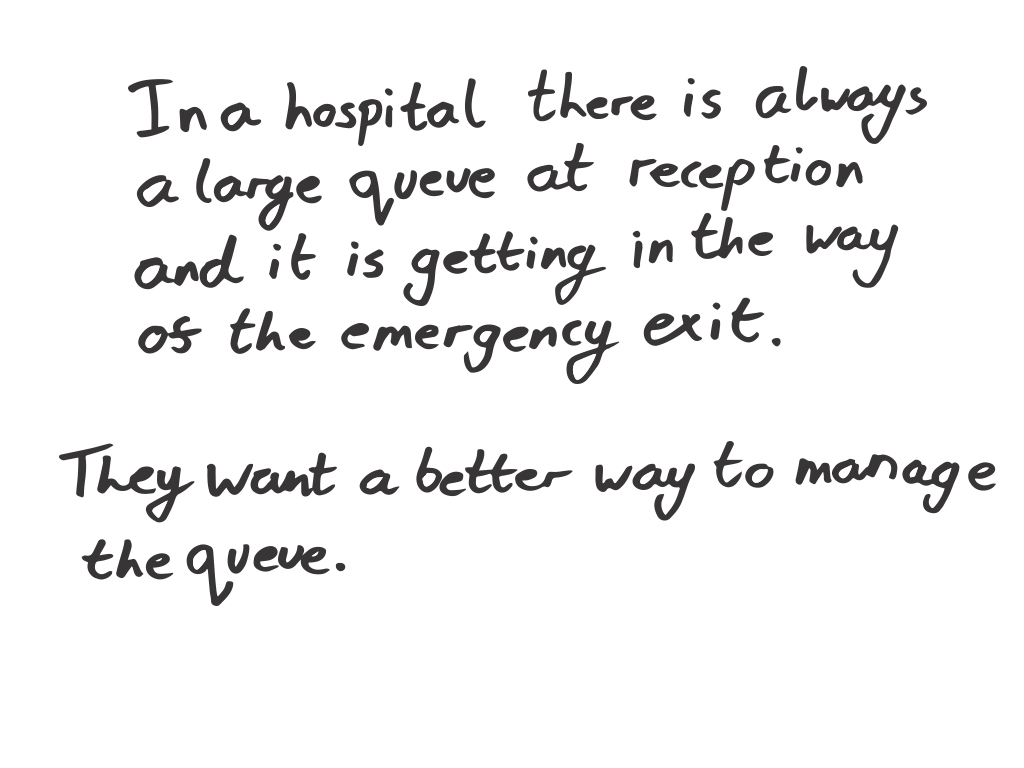 In a hospital there is always
a large queue at reception
and it is getting in the way
of the emergency exit.
They want a better way to manage
the queue.